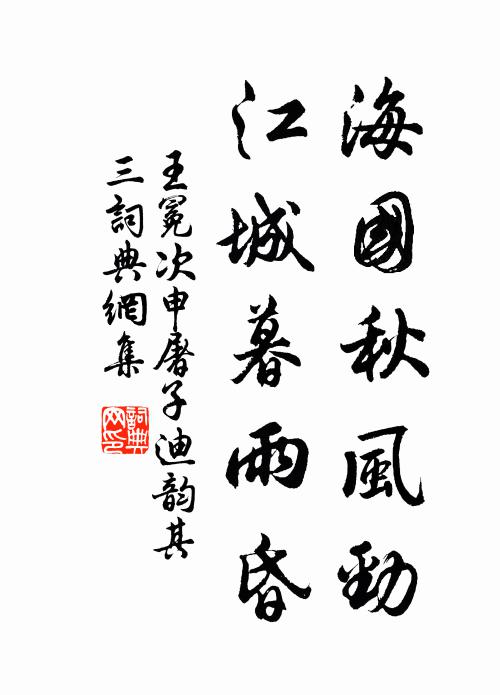 海國秋風勁
江城暮雨昏
王冕次申屠子迪韵其
三詞典網集
詞典
网印